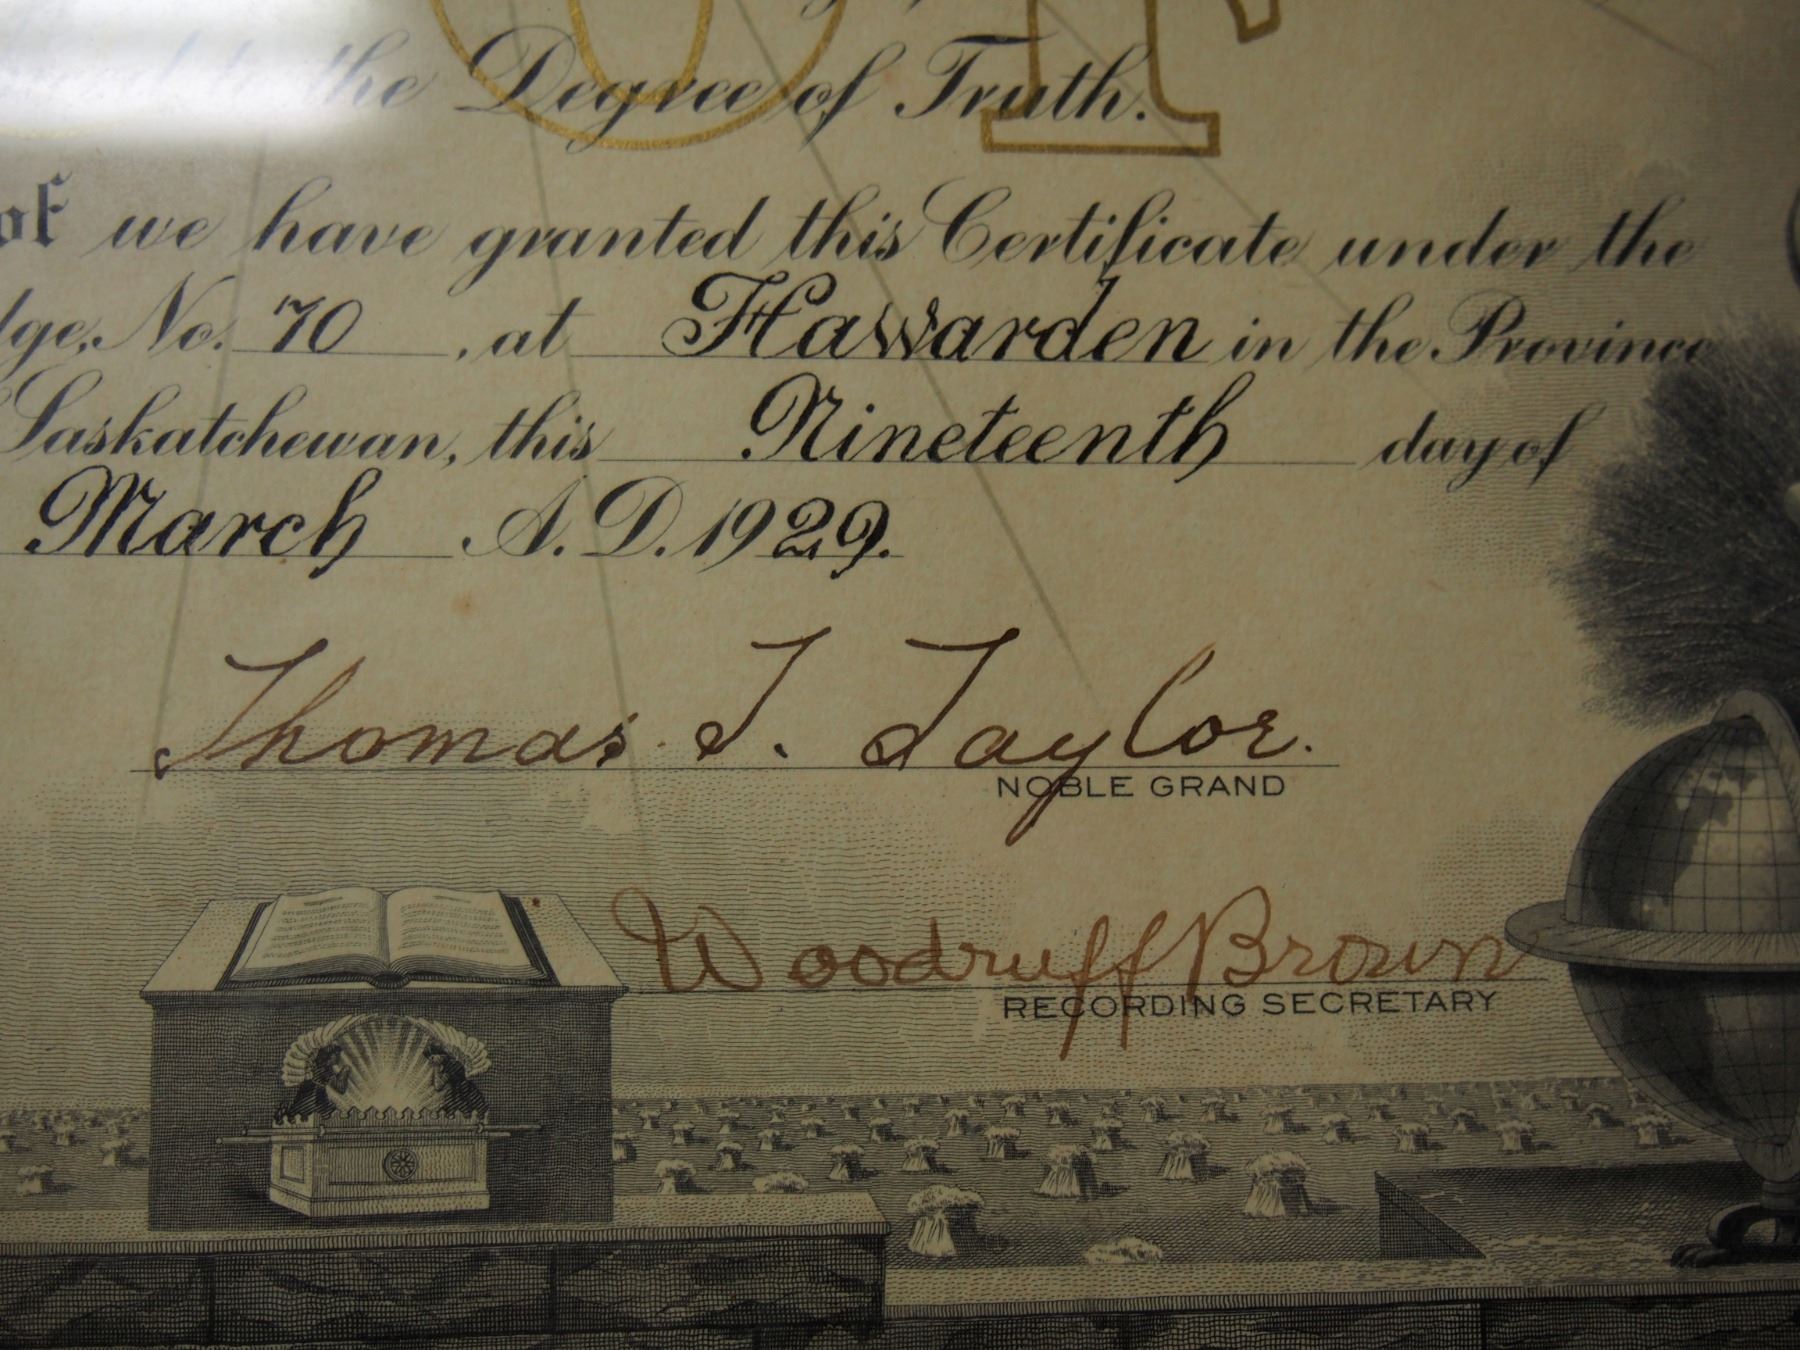 the Degree of Truth.
of we have granted this Certificate under the
dge, No. 70, at Hawarden in the Province
Saskatchewan, this Nineteenth day of
March A.D. 1929.
Thomas T. Taylor.
NOBLE GRAND
Woodruff Brown
RECORDING SECRETARY